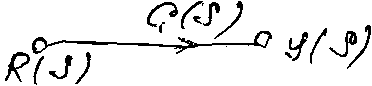 G(s)
R(s) y(s)